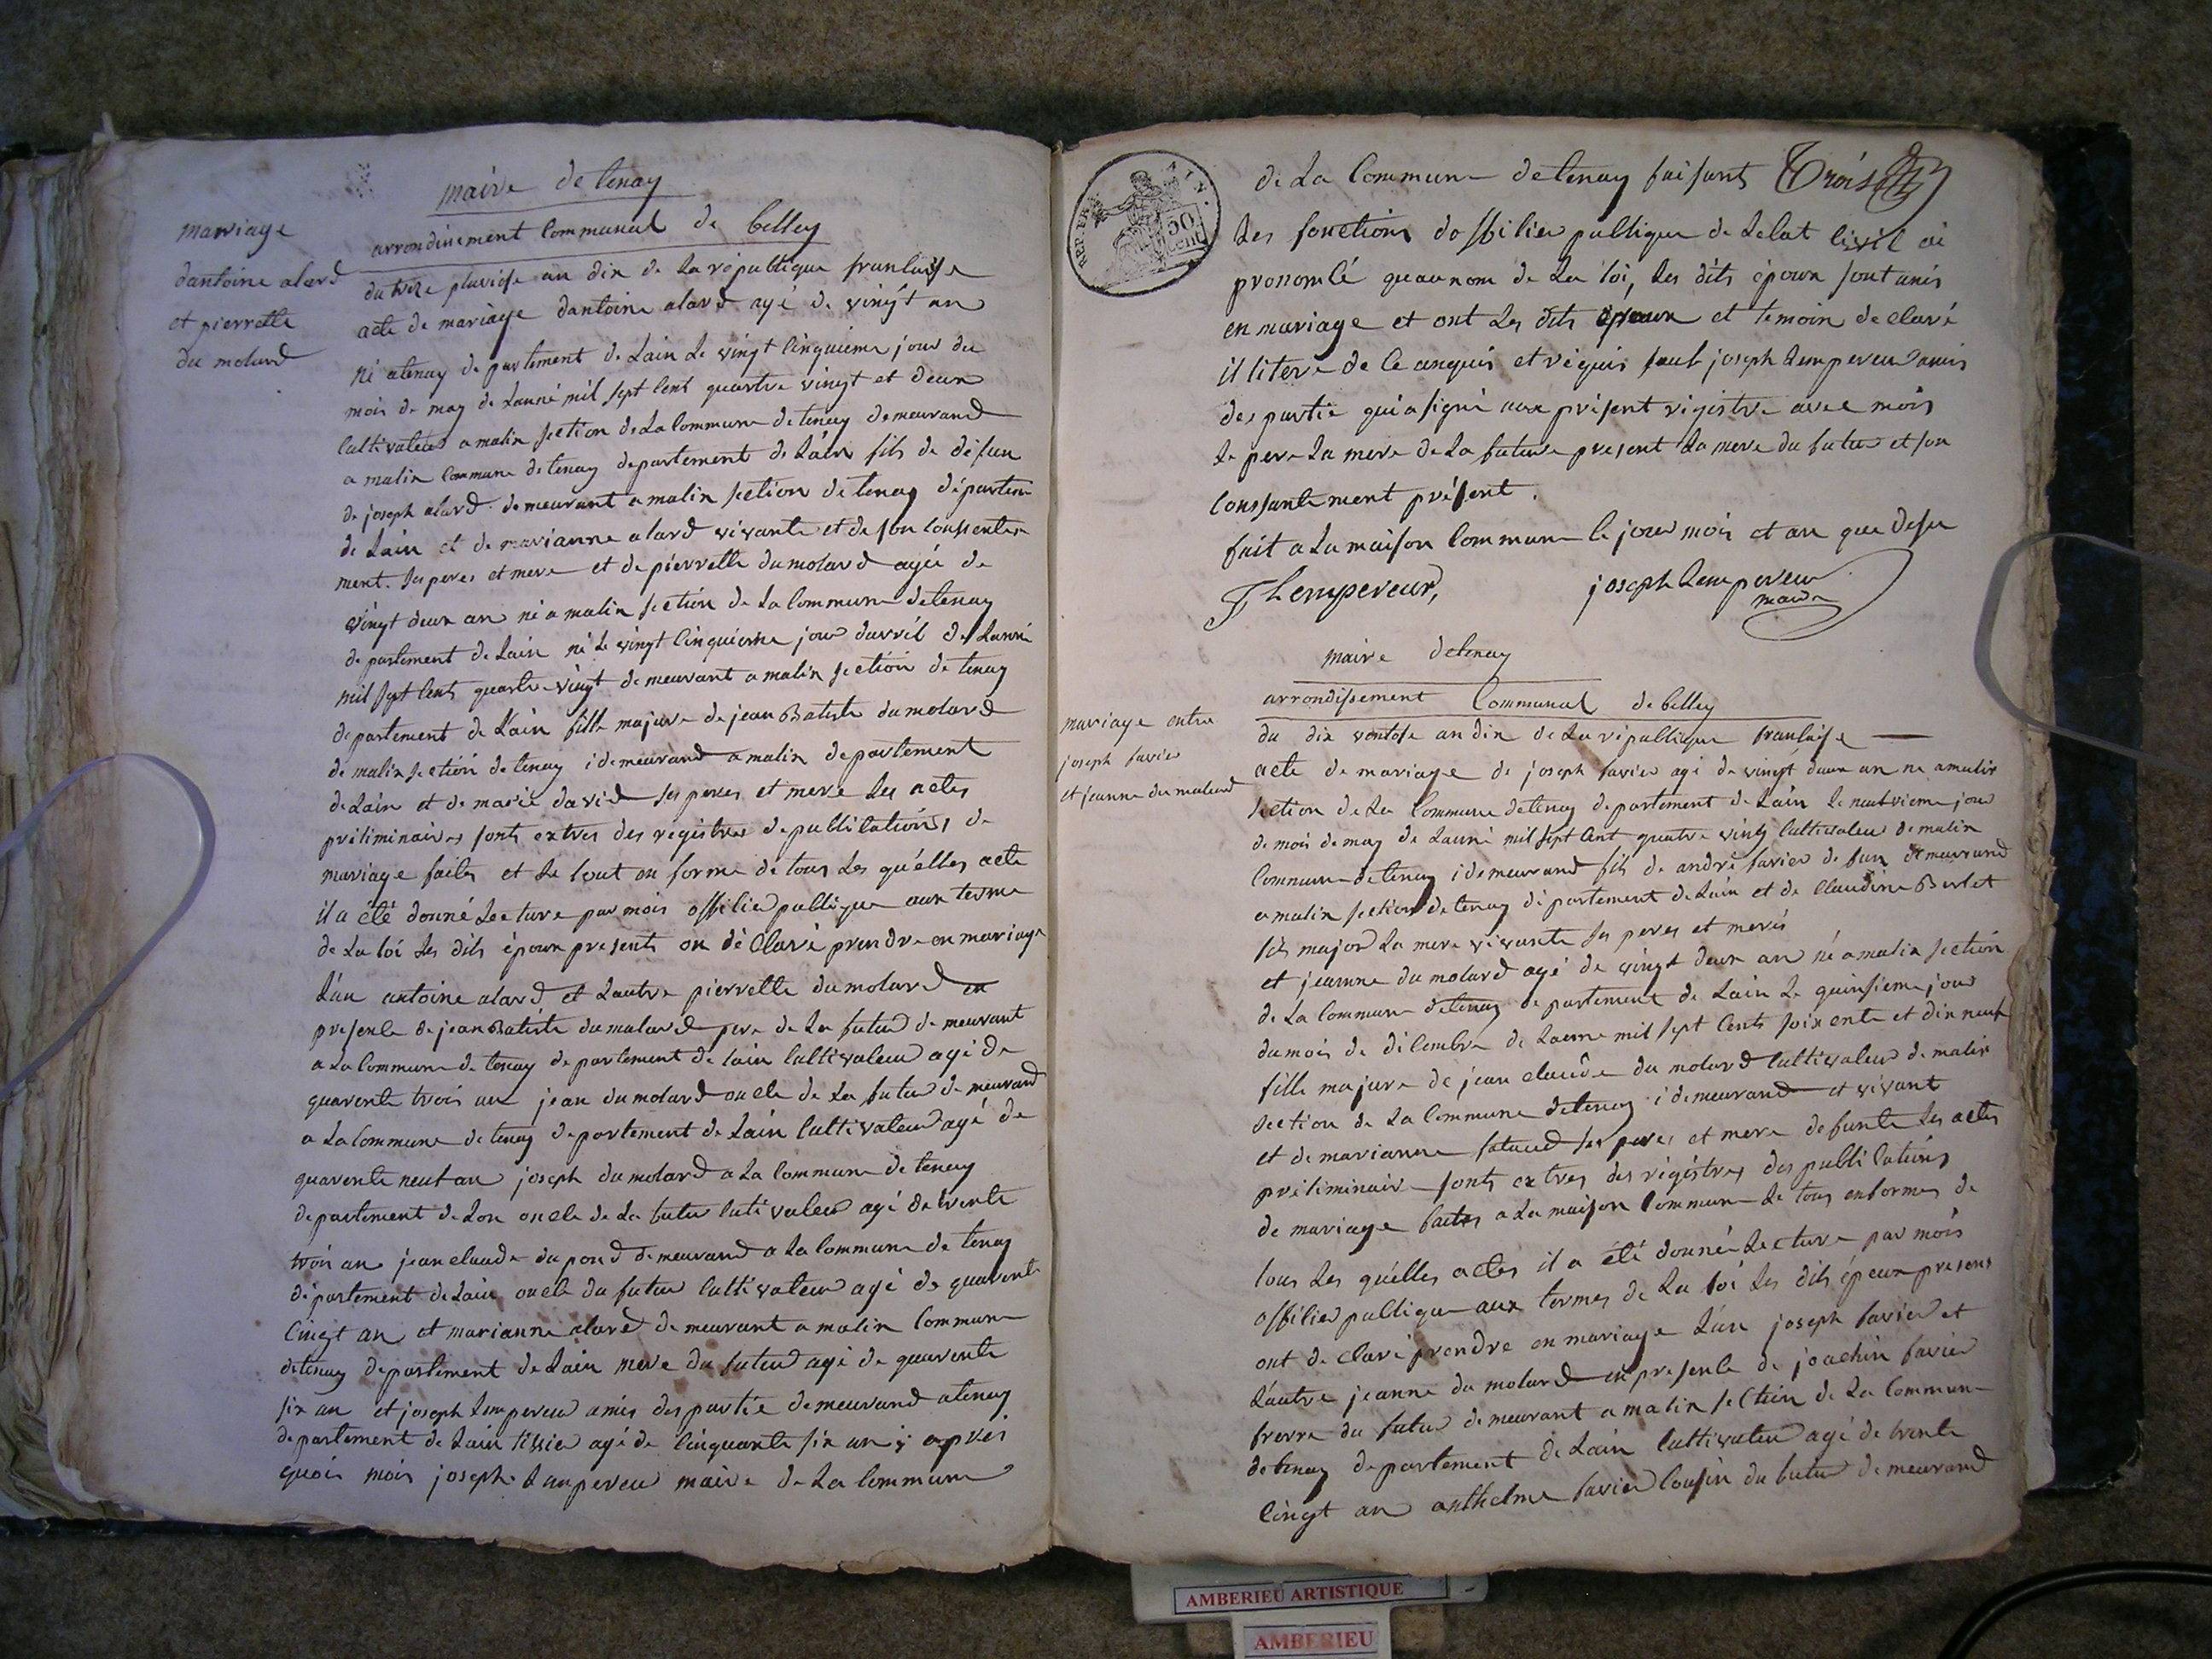 maire de tenay
arrondinement Communal de belley
mariage
dantoine alard
et pierrette
du molard
du treze pluviose an dix de la république franlaise
acte de mariage dantoine alard agé de vingt an
né atenay de partement de Lain Le vingt cinquieme jour du
mois de may de Lanné mil sept cent quatre vingt et deux
Cultivateur a malix section de La Commune de tenay demeurand
a malix commune de tenay departement de Lain fils de défun
de joseph alard demeurant a malix section de tenay départem
de Lain et de marianne alard vivante et de son conssente
ment. ses peres et mere et de pierrette dumolard agée de
vingt deux an né a malix section de La Commune detenay
de partement de Lain né Le vingt Cinquieme jour davril de Lanné
mil sept cents quatre vingt demeurant a malix section de tenay
departement de Lain fille majure de jean Batiste dumolard
de malix section de tenay i demeurand a malix departement
de Lain et de marie david ses peres et mere Les actes
préliminaires sonts extres des registres de publications de
mariage faites et Le tout en forme de tous Les quélles acte
il a été donné Lecture par mois offilier publique aux terme
de La loi Les dits époux presents on dé Claré prendre en mariage
Lun antoine alard et Lautre pierrette dumolard en
presence de jean Batiste dumolard pere de La futur demeurant
a La Commune de tenay de partement de Lain Cultivateur agé de
quarente trois ans jean dumolard oncle de La futur demeurand
a La Commune de tenay departement de Lain Cultivateur agé de
quarente neuf an joseph dumolard a La Commune de tenay
departement de Lon oncle de La futur Cultivateur agé de trente
trois an jean claude dupond demeurand a La Commune de tenay
département de Lain oncle du futur Cultivateur agé de quarente
Cingt an et marianne alard demeurant a malix Commune
detenay departement de Lain mere du futur agé de quarente
six an et joseph Lempereur amis des partie demeurand atenay
departement de Lain agé de Cinquante six an ; apres
quoi mois joseph Lempereur maire de La Commune
REP. FRA. AIN.
50
cent
de La Commune detenay faisants Trois
Les fonctions doffilier publique de Letat civil ai
prononcé quau nom de La loi, Les dits époux sont unis
en mariage et ont Les dits époux et temoin de claré
il litere de Ce anquis et réquis sauf joseph Lempereur amis
des partie qui a signé aux présent régistre avec mois
Le pere La mere de La future present La mere du futur et son
Conssantement présent.
fait a La maison Commune le jour mois et an que desu
J Lempereur,
joseph Lempereur
maire
maire detenay
arrondissement Communal de belley
mariage entre
joseph favier
et jeanne du molard
du dix ventose an dix de La république franlaise
acte de mariage de joseph favier agé de vingt deux an né a malix
section de La Commune detenay departement de Lain Le neufvieme jour
de mois de may de Lanné mil sept cent quatre vingt Cultivateur de malix
Commune detenay i demeurand fils de andré favier de fun demeurand
a malix section de tenay département de Lain et de Claudine Berlet
fils major La mere vivante ses peres et meres
et jeanne du molard agé de vingt deux an né a malix section
de La Commune detenay de partement de Lain Le quinsieme jour
du mois de dilembre de Lanne mil sept Cents soixente et dix neuf
fille majure de jean claude du molard Cultivateur de malix
section de La Commune detenay i demeurand et vivant
et de marianne ses peres et mere defunte Les actes
préliminaire sonts extres des régistres des publications
de mariage faites a La maison Commune Le tous enformes de
tous Les quélles actes il a été donné Lecture par mois
offilier publique aux termes de La loi Les dits époux presens
ont de claré prendre en mariage Lun joseph favier et
Lautre jeanne du molard en presence de joachin favier
frerre du futur demeurant a malix section de La Commune
detenay departement de Lain Cultivateur agé de trente
Cingt an anthelme favier Cousin du futur demeurand
AMBERIEU ARTISTIQUE
AMBERIEU